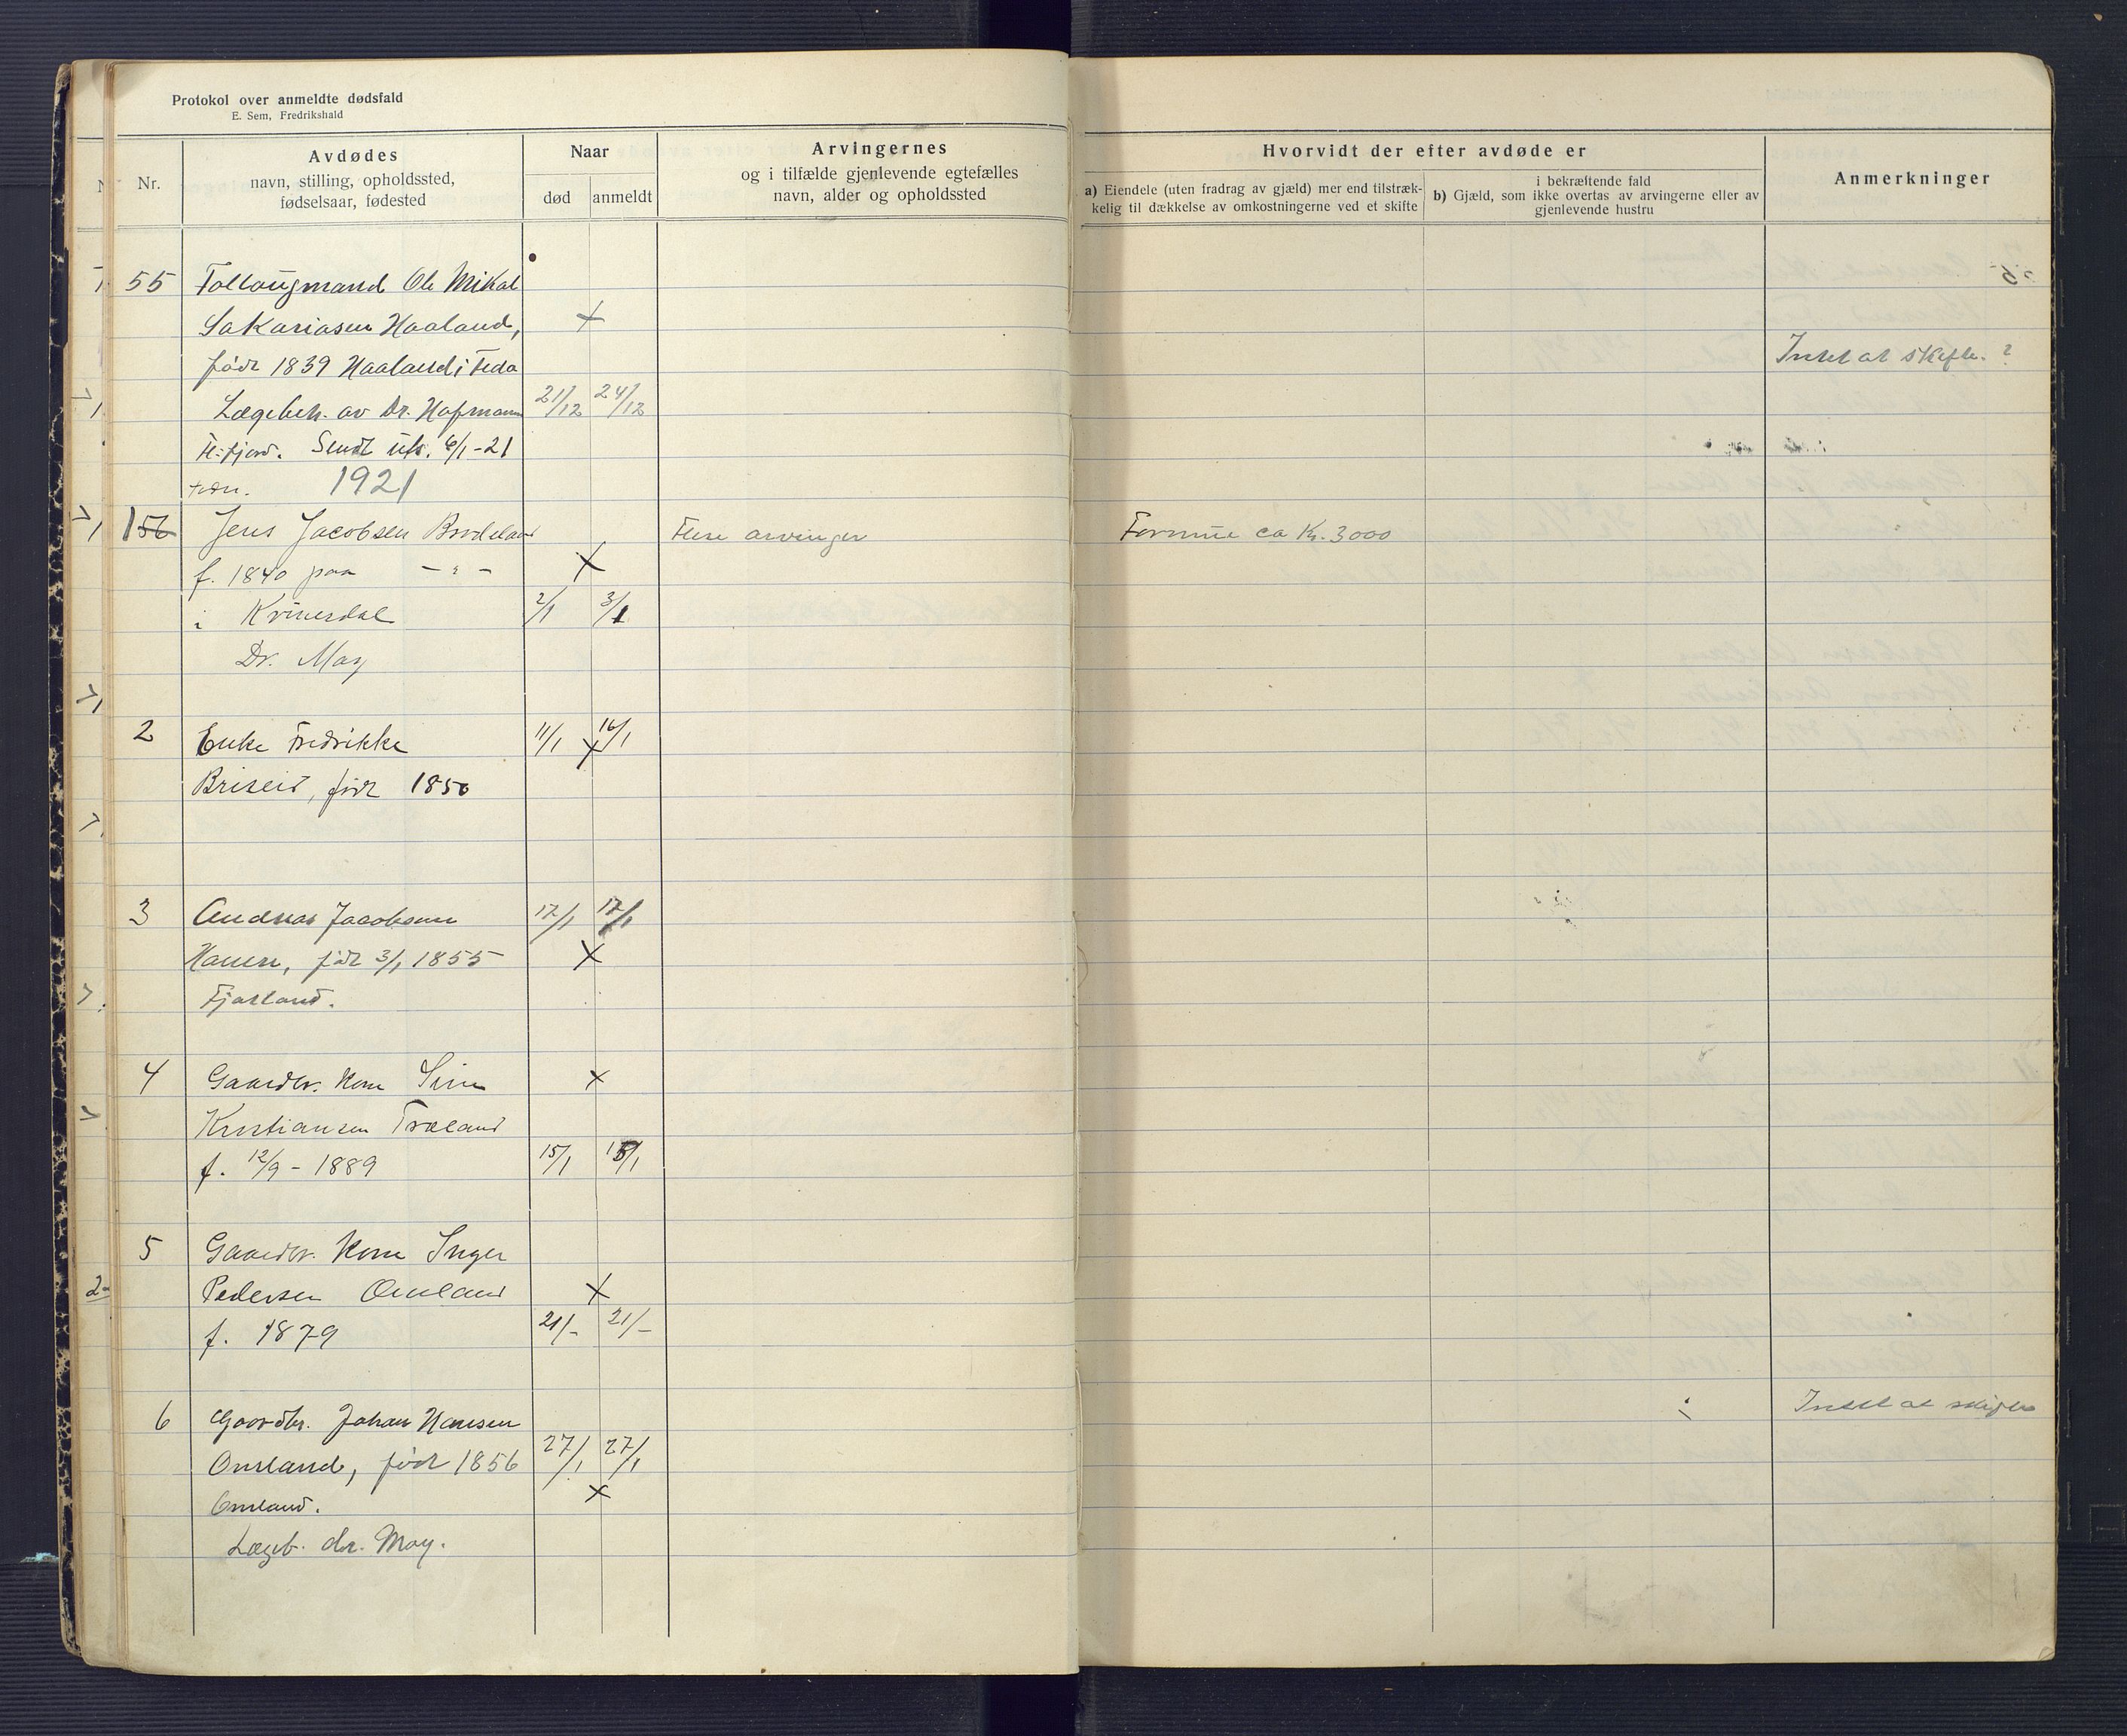 Protokol over anmeldte dødsfald
E. Sem, Fredrikshald
Nr.
Avdødes
navn, stilling, opholdssted,
fødselsaar, fødested
Naar
død
anmeldt
Arvingernes
og i tilfælde gjenlevende egtefælles
navn, alder og opholdssted
Hvorvidt der efter avdøde er
a) Eiendele (uten fradrag av gjæld) mer end tilstræk-
kelig til dækkelse av omkostningerne ved et skifte
i bekræftende fald
b) Gjæld, som ikke overtas av arvingerne eller av
gjenlevende hustru
Anmerkninger
55 Follaugmand Ole Mikal
Sakariasen Haaland,
født 1839 Haaland i Feda
Intet at skifte. ?
Lægebeh. av Dr. Hofmann 21/12 24/12
F.fjord. Sendt uts. 6/1-21
1921
1 56 Jens Jacobsen Brødeland Flere arvinger Formue ca Kr. 3000
f. 1840 paa - " -
i Kvinesdal 2/1 3/1
Dr. May
2 Enke Fredrikke 11/1 16/1
Briseid, født 1850
3 Andreas Jacobsen 17/1 17/1
Hansen, født 3/1 1855
Fjotland.
4 Gaardbr. Kone Sine
Kristiansen Træland
f. 12/9 - 1889 15/1 18/1
5 Gaardbr. Kone Inger
Pedersen Omland
f. 1879 21/- 21/-
6 Gaardbr. Johan Hansen Intet at skifte
Omland, født 1856 27/1 27/1
Omland.
Lægeb. dr. May.